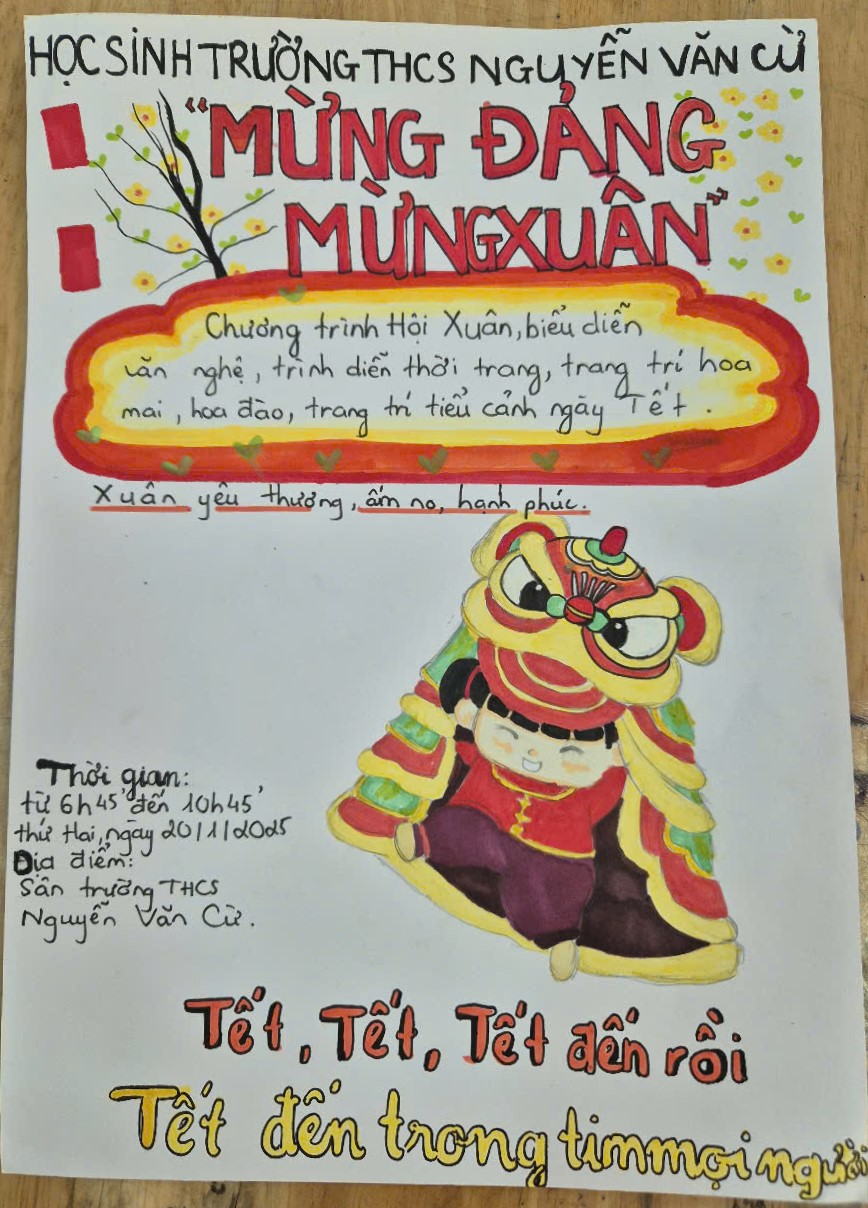 HỌC SINH TRƯỜNG THCS NGUYỄN VĂN CỪ
"MỪNG ĐẢNG
MỪNG XUÂN"
Chương trình Hội Xuân, biểu diễn
văn nghệ, trình diễn thời trang, trang trí hoa
mai, hoa đào, trang trí tiểu cảnh ngày Tết.
Xuân yêu thương, ấm no, hạnh phúc.
Thời gian:
từ 6h45' đến 10h45'
thứ Hai, ngày 20/1/2025
Địa điểm:
Sân trường THCS
Nguyễn Văn Cừ.
Tết, Tết, Tết đến rồi
Tết đến trong tim mọi người